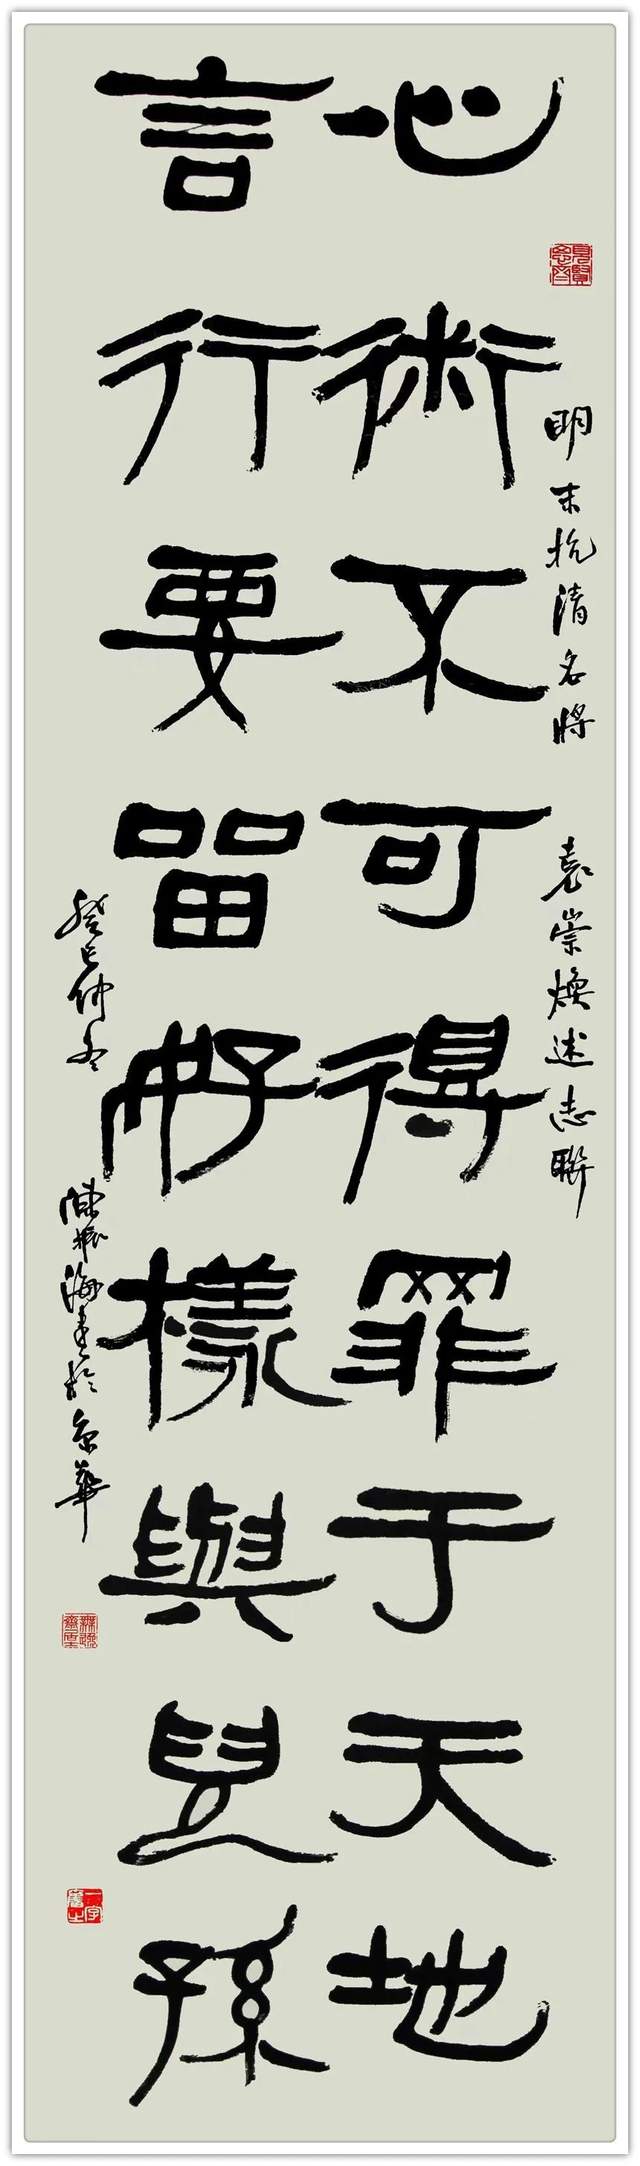 心術不可得罪于天地
言行要留好樣與兒孫
明末抗清名將
袁崇煥述志聯
癸巳仲冬
陳振海書於京華
見賢思齊